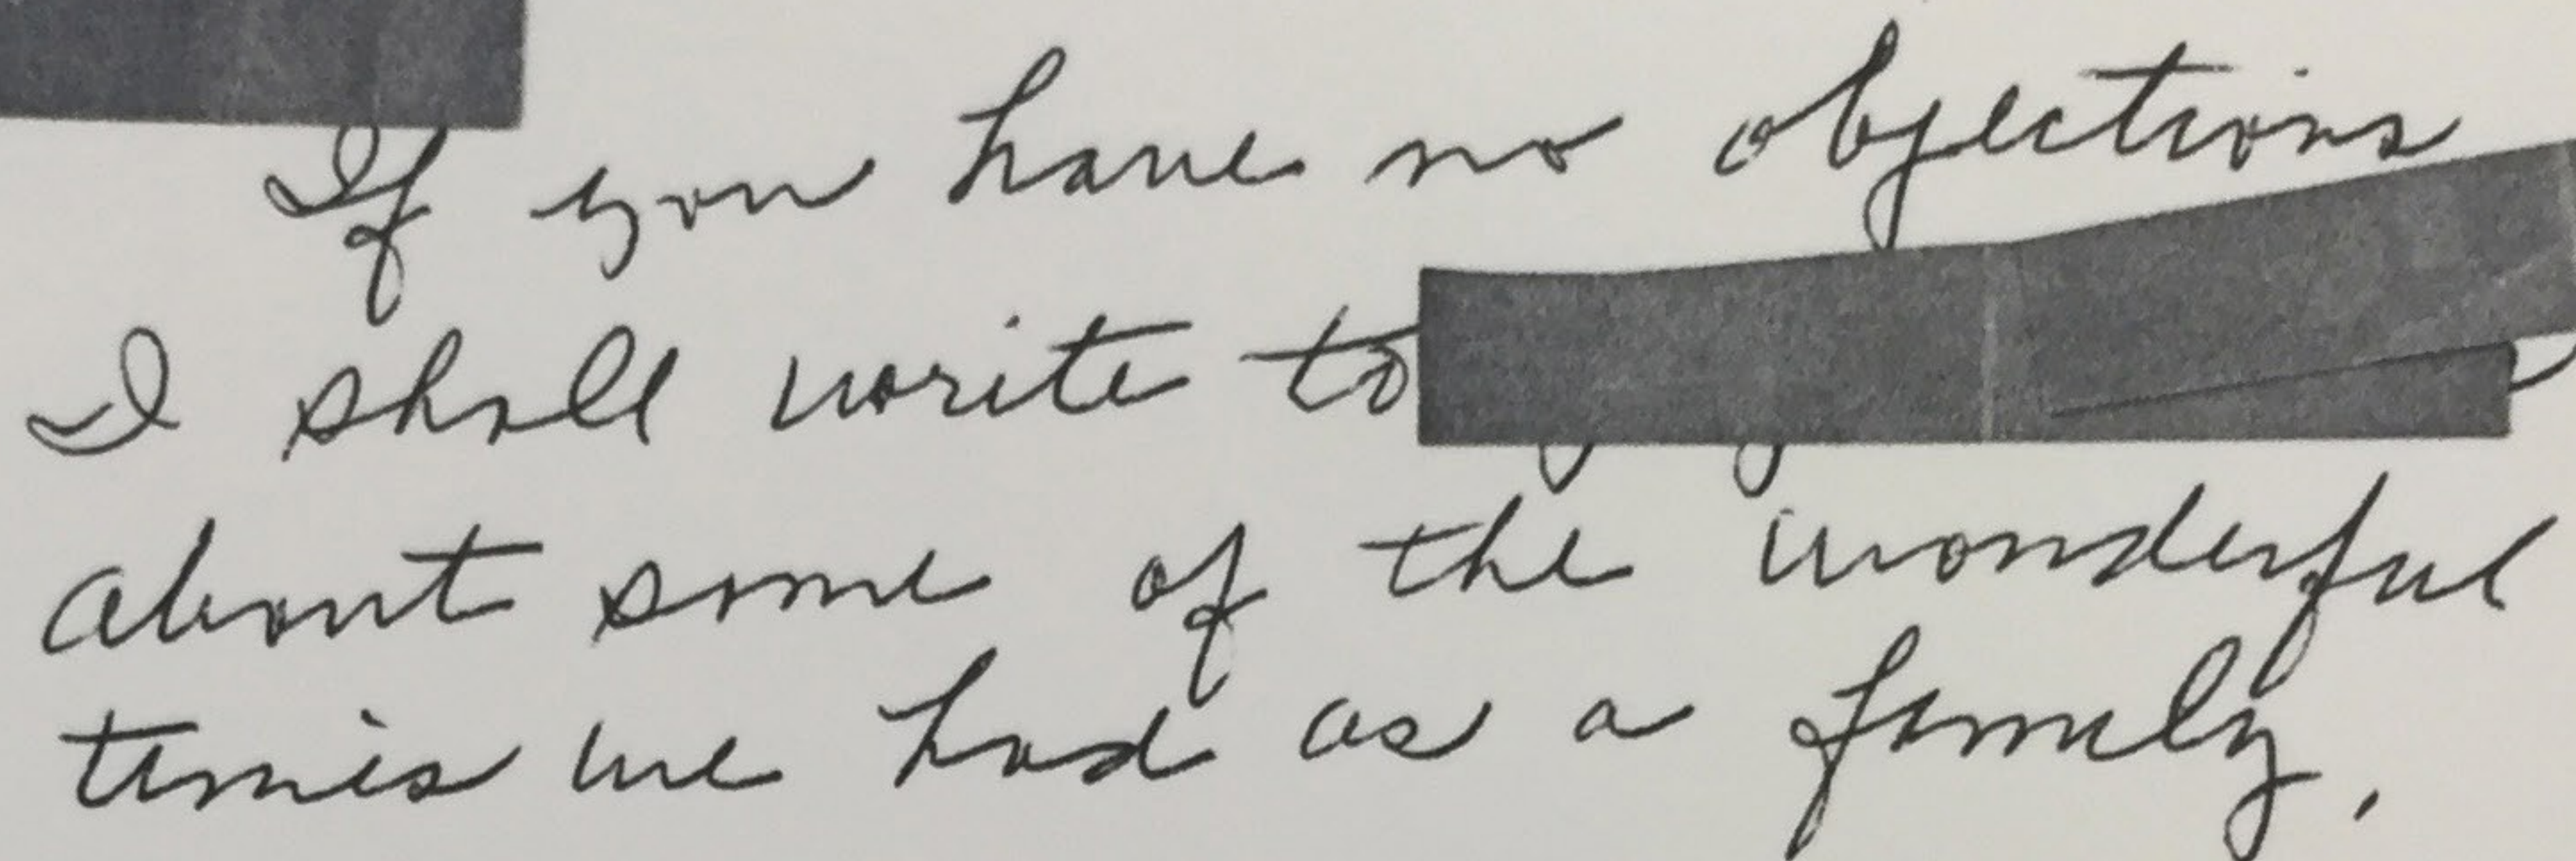 If you have no objections
I shall write to
about some of the wonderful
times we had as a family.